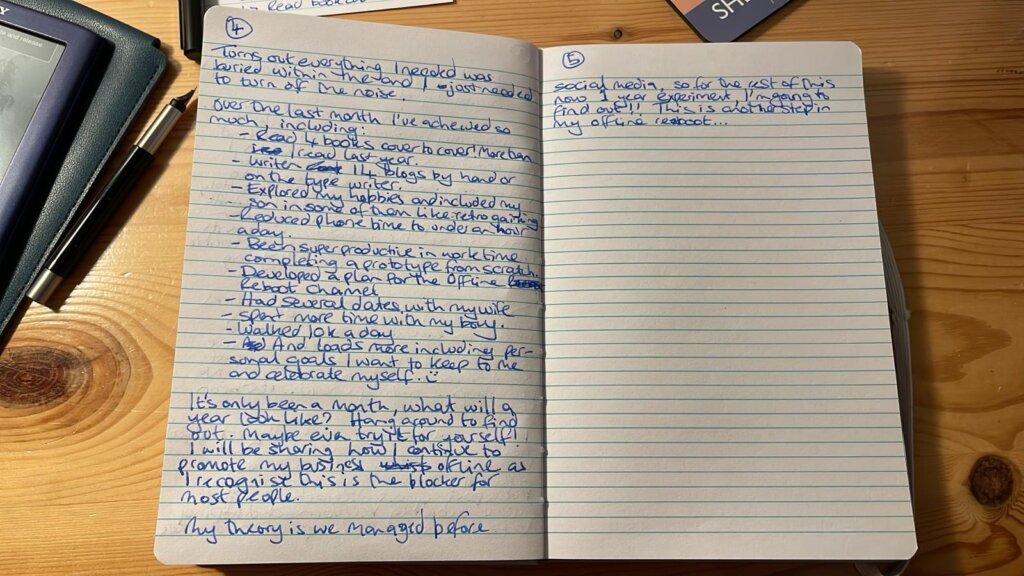 Read book
SHE
Y
and release
4
Turns out everything I needed was
buried within me and I just needed
to turn off the noise.
Over the last month I've acheived so
much, including:
- Read 4 books cover to cover! More than
I read last year.
- Writen 14 blogs by hand or
on the type writer.
- Explored my hobbies and included my
son in some of them like retro gaming
- Reduced phone time to under an hour
a day.
- Been super productive in work time
completing a prototype from scratch.
- Developed a plan for the Offline
Reboot Channel
- Had several dates with my wife
- Spent more time with my boy.
- Walked 10k a day
- And loads more including per-
sonal goals I want to keep to me
and celebrate myself. :)
It's only been a month, what will a
year look like? Hang around to find
out. Maybe even try it for yourself!
I will be sharing how I continue to
promote my business offline as
I recognise this is the blocker for
most people.
My theory is we managed before
5
social media, so for the rest of this
now 1 year experiment I'm going to
find out!! This is another step in
my offline reboot...